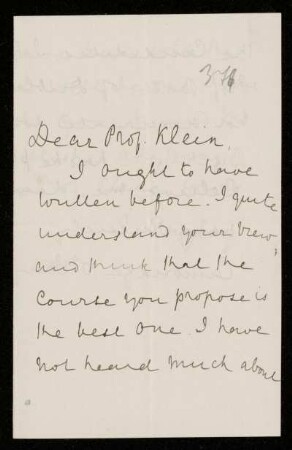 Dear Prof. Klein,
I ought to have
written before. I quite
understand your view
and think that the
course you propose is
the best one. I have
not heard much about